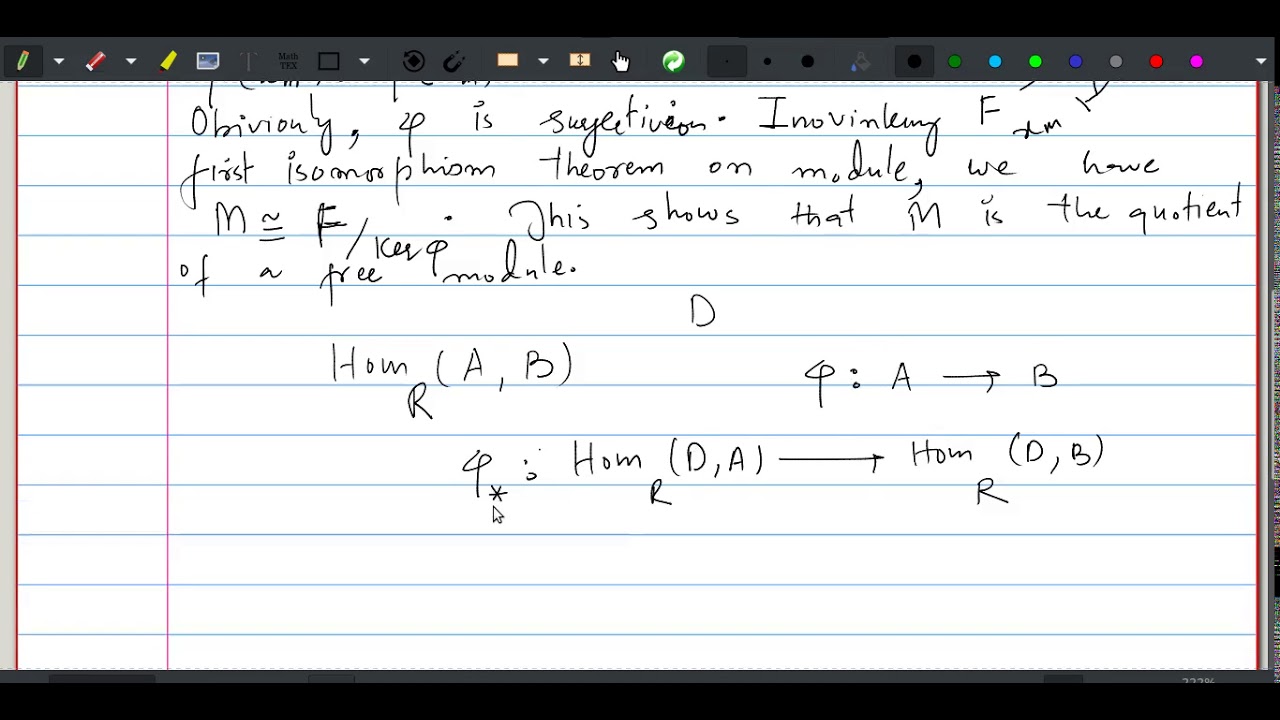 Math
TEX
Obiviouly, φ is surjectivion. Inovinkemg F
x m
first isomorphism theorem on module, we have
M ≅ F/Ker φ. This shows that M is the quotient
of a free module.
D
Hom_R (A, B) φ : A → B
φ_* : Hom_R (D, A) → Hom_R (D, B)